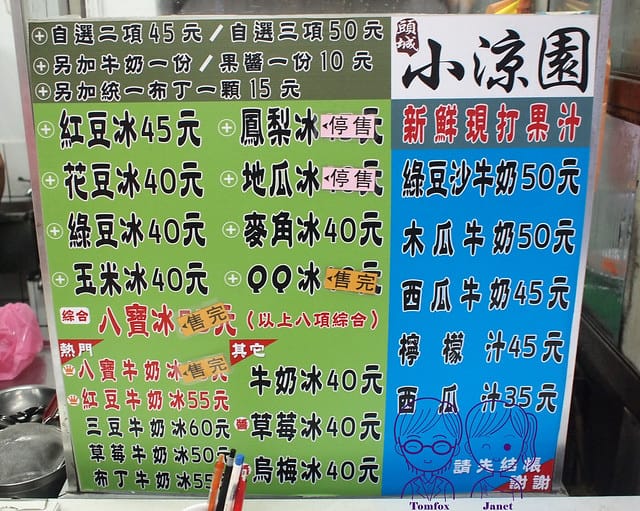 自選二項45元/自選三項50元
另加牛奶一份/果醬一份10元
另加統一布丁一顆15元
頭城 小涼園
紅豆冰45元
花豆冰40元
綠豆冰40元
玉米冰40元
鳳梨冰 停售 元
地瓜冰 停售
麥角冰40元
QQ冰 售完
綜合 八寶冰 售完 元(以上八項綜合)
熱門
八寶牛奶冰 售完
紅豆牛奶冰55元
三豆牛奶冰60元
草莓牛奶冰50元
布丁牛奶冰55
其它
牛奶冰40元
醬 草莓冰40元
烏梅冰40元
新鮮現打果汁
綠豆沙牛奶50元
木瓜牛奶50元
西瓜牛奶45元
檸檬汁45元
西瓜汁35元
請先結帳
謝謝
Tomfox Janet